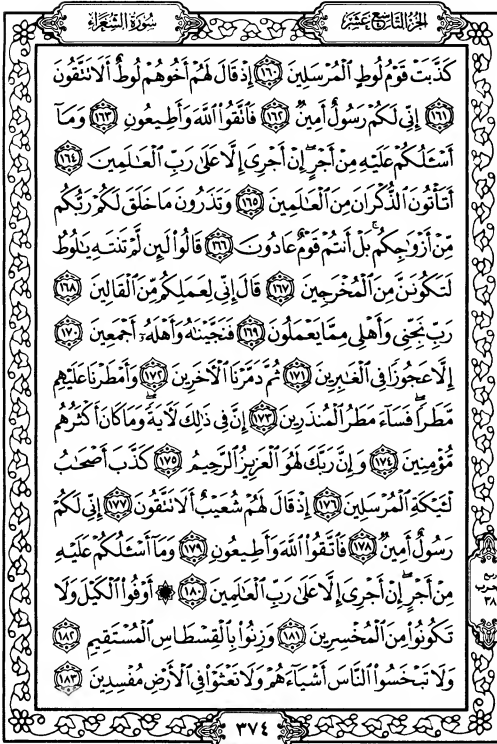 سورة الشعراء
الجزء التاسع عشر
كَذَّبَتْ قَوْمُ لُوطٍ الْمُرْسَلِينَ ﴿١٦٠﴾ إِذْ قَالَ لَهُمْ أَخُوهُمْ لُوطٌ أَلَا تَتَّقُونَ
﴿١٦١﴾ إِنِّي لَكُمْ رَسُولٌ أَمِينٌ ﴿١٦٢﴾ فَاتَّقُوا اللَّهَ وَأَطِيعُونِ ﴿١٦٣﴾ وَمَا
أَسْـَٔلُكُمْ عَلَيْهِ مِنْ أَجْرٍ إِنْ أَجْرِيَ إِلَّا عَلَىٰ رَبِّ الْعَـٰلَمِينَ ﴿١٦٤﴾
أَتَأْتُونَ الذُّكْرَانَ مِنَ الْعَـٰلَمِينَ ﴿١٦٥﴾ وَتَذَرُونَ مَا خَلَقَ لَكُمْ رَبُّكُم
مِّنْ أَزْوَٰجِكُم بَلْ أَنتُمْ قَوْمٌ عَادُونَ ﴿١٦٦﴾ قَالُوا لَئِن لَّمْ تَنتَهِ يَـٰلُوطُ
لَتَكُونَنَّ مِنَ الْمُخْرَجِينَ ﴿١٦٧﴾ قَالَ إِنِّي لِعَمَلِكُم مِّنَ الْقَالِينَ ﴿١٦٨﴾
رَبِّ نَجِّنِي وَأَهْلِي مِمَّا يَعْمَلُونَ ﴿١٦٩﴾ فَنَجَّيْنَـٰهُ وَأَهْلَهُۥٓ أَجْمَعِينَ ﴿١٧٠﴾
إِلَّا عَجُوزًا فِي الْغَـٰبِرِينَ ﴿١٧١﴾ ثُمَّ دَمَّرْنَا الْآخَرِينَ ﴿١٧٢﴾ وَأَمْطَرْنَا عَلَيْهِم
مَّطَرًا فَسَاءَ مَطَرُ الْمُنذَرِينَ ﴿١٧٣﴾ إِنَّ فِي ذَٰلِكَ لَآيَةً وَمَا كَانَ أَكْثَرُهُم
مُّؤْمِنِينَ ﴿١٧٤﴾ وَإِنَّ رَبَّكَ لَهُوَ الْعَزِيزُ الرَّحِيمُ ﴿١٧٥﴾ كَذَّبَ أَصْحَـٰبُ
لْـَٔيْكَةِ الْمُرْسَلِينَ ﴿١٧٦﴾ إِذْ قَالَ لَهُمْ شُعَيْبٌ أَلَا تَتَّقُونَ ﴿١٧٧﴾ إِنِّي لَكُمْ
رَسُولٌ أَمِينٌ ﴿١٧٨﴾ فَاتَّقُوا اللَّهَ وَأَطِيعُونِ ﴿١٧٩﴾ وَمَا أَسْـَٔلُكُمْ عَلَيْهِ
مِنْ أَجْرٍ إِنْ أَجْرِيَ إِلَّا عَلَىٰ رَبِّ الْعَـٰلَمِينَ ﴿١٨٠﴾ ۞ أَوْفُوا الْكَيْلَ وَلَا
تَكُونُوا مِنَ الْمُخْسِرِينَ ﴿١٨١﴾ وَزِنُوا بِالْقِسْطَاسِ الْمُسْتَقِيمِ ﴿١٨٢﴾
وَلَا تَبْخَسُوا النَّاسَ أَشْيَاءَهُمْ وَلَا تَعْثَوْا فِي الْأَرْضِ مُفْسِدِينَ ﴿١٨٣﴾
٣٨
٣٧٤